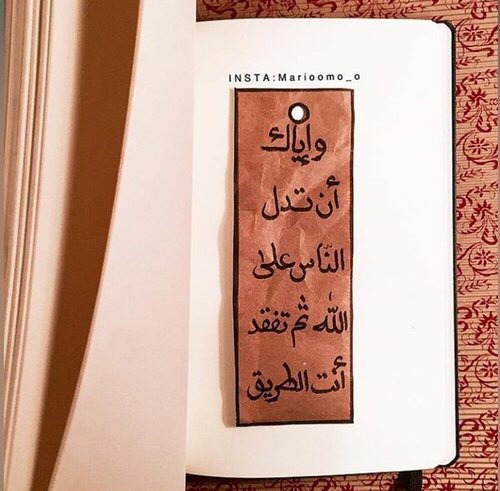 INSTA:Marioomo_o
وإياك
أن تدل
الناس على
الله ثم تفقد
أنت الطريق